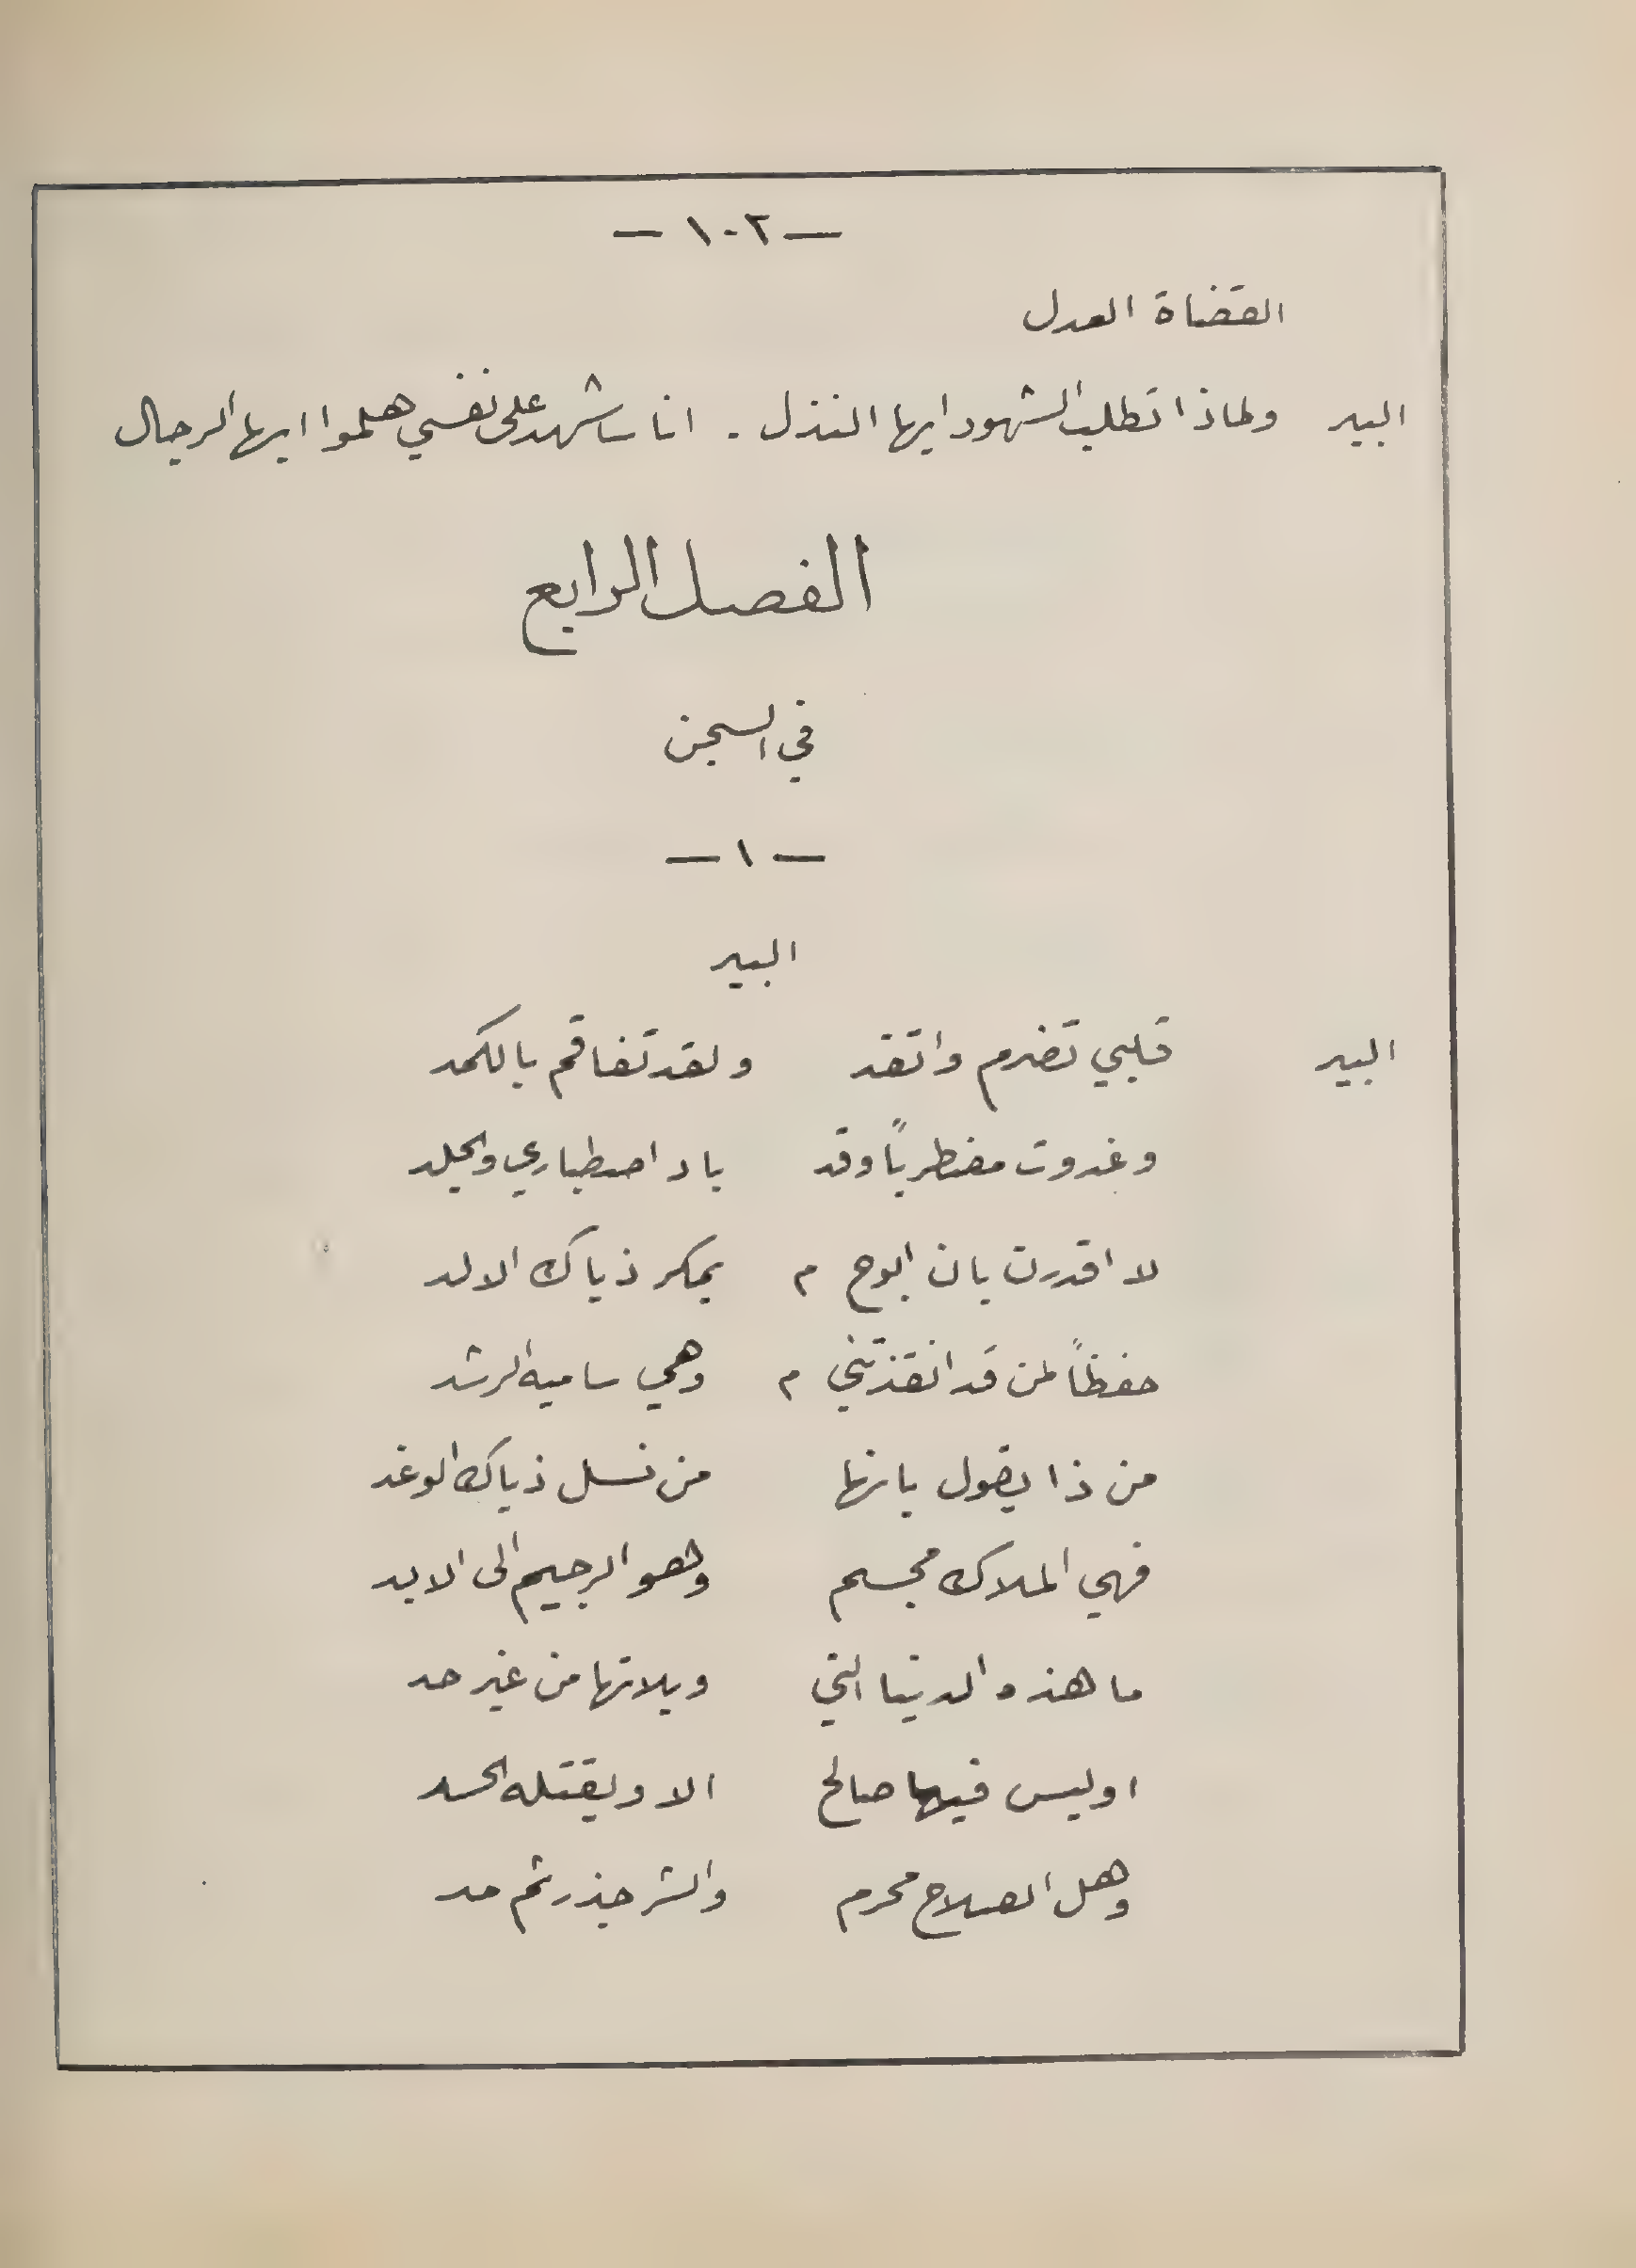 — ١٠٢ —
القضاة العدل
البير ولماذا تطلب الشهود ايها النذل . انا ساشهد على نفسي هلموا ايها الرجال
الفصل الرابع
في السجن
— ١ —
البير
البير قلبي تضرم واتقد ولقد تفاقم بالكمد
وغدوت مضطرباً وقد باد اصطباري والجلد
لا اقدرن بان ابوح م بمكر ذياك الالد
حفظاً لمن قد انقذتني م وهي سامية الرشد
من ذا يقول بانها من نسل ذياك الوغد
فهي الملاك مجسم وهو الرجيم الى الابد
ما هذه الدنيا التي ويلاتها من غير حد
اوليس فيها صالح الا ويقتله الحسد
وهل الصلاح محرم والشر جذر ثم مد